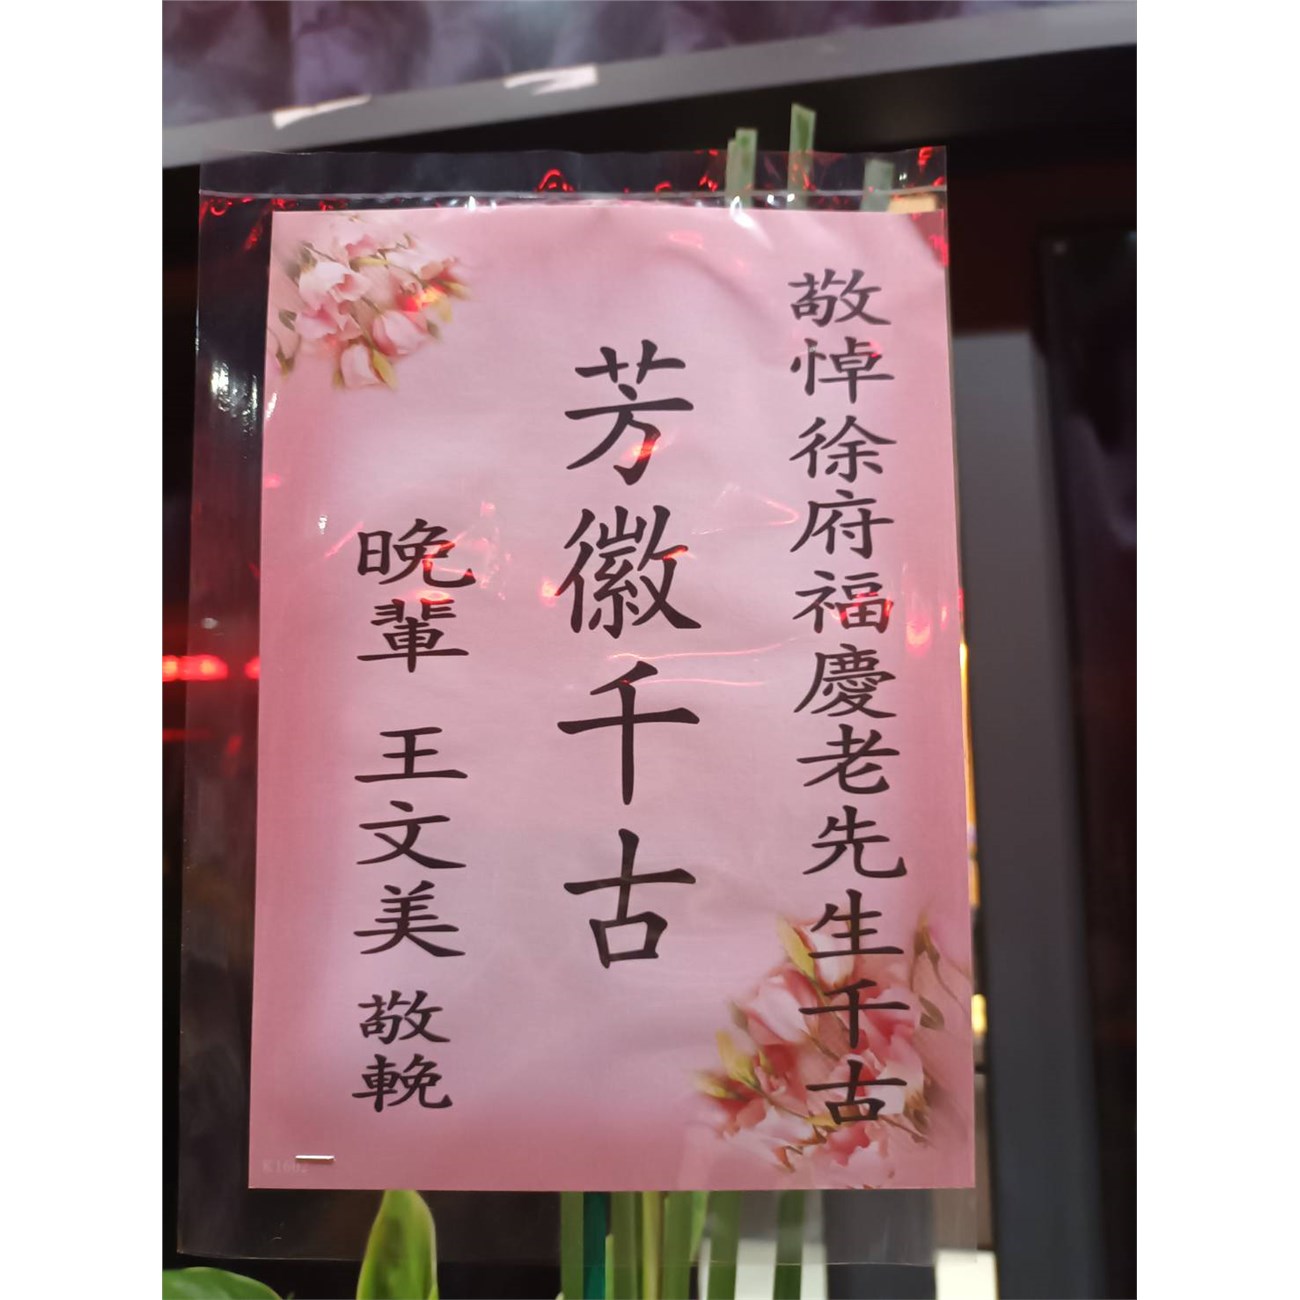 敬悼徐府福慶老先生千古
芳徽千古
晚輩 王文美 敬輓